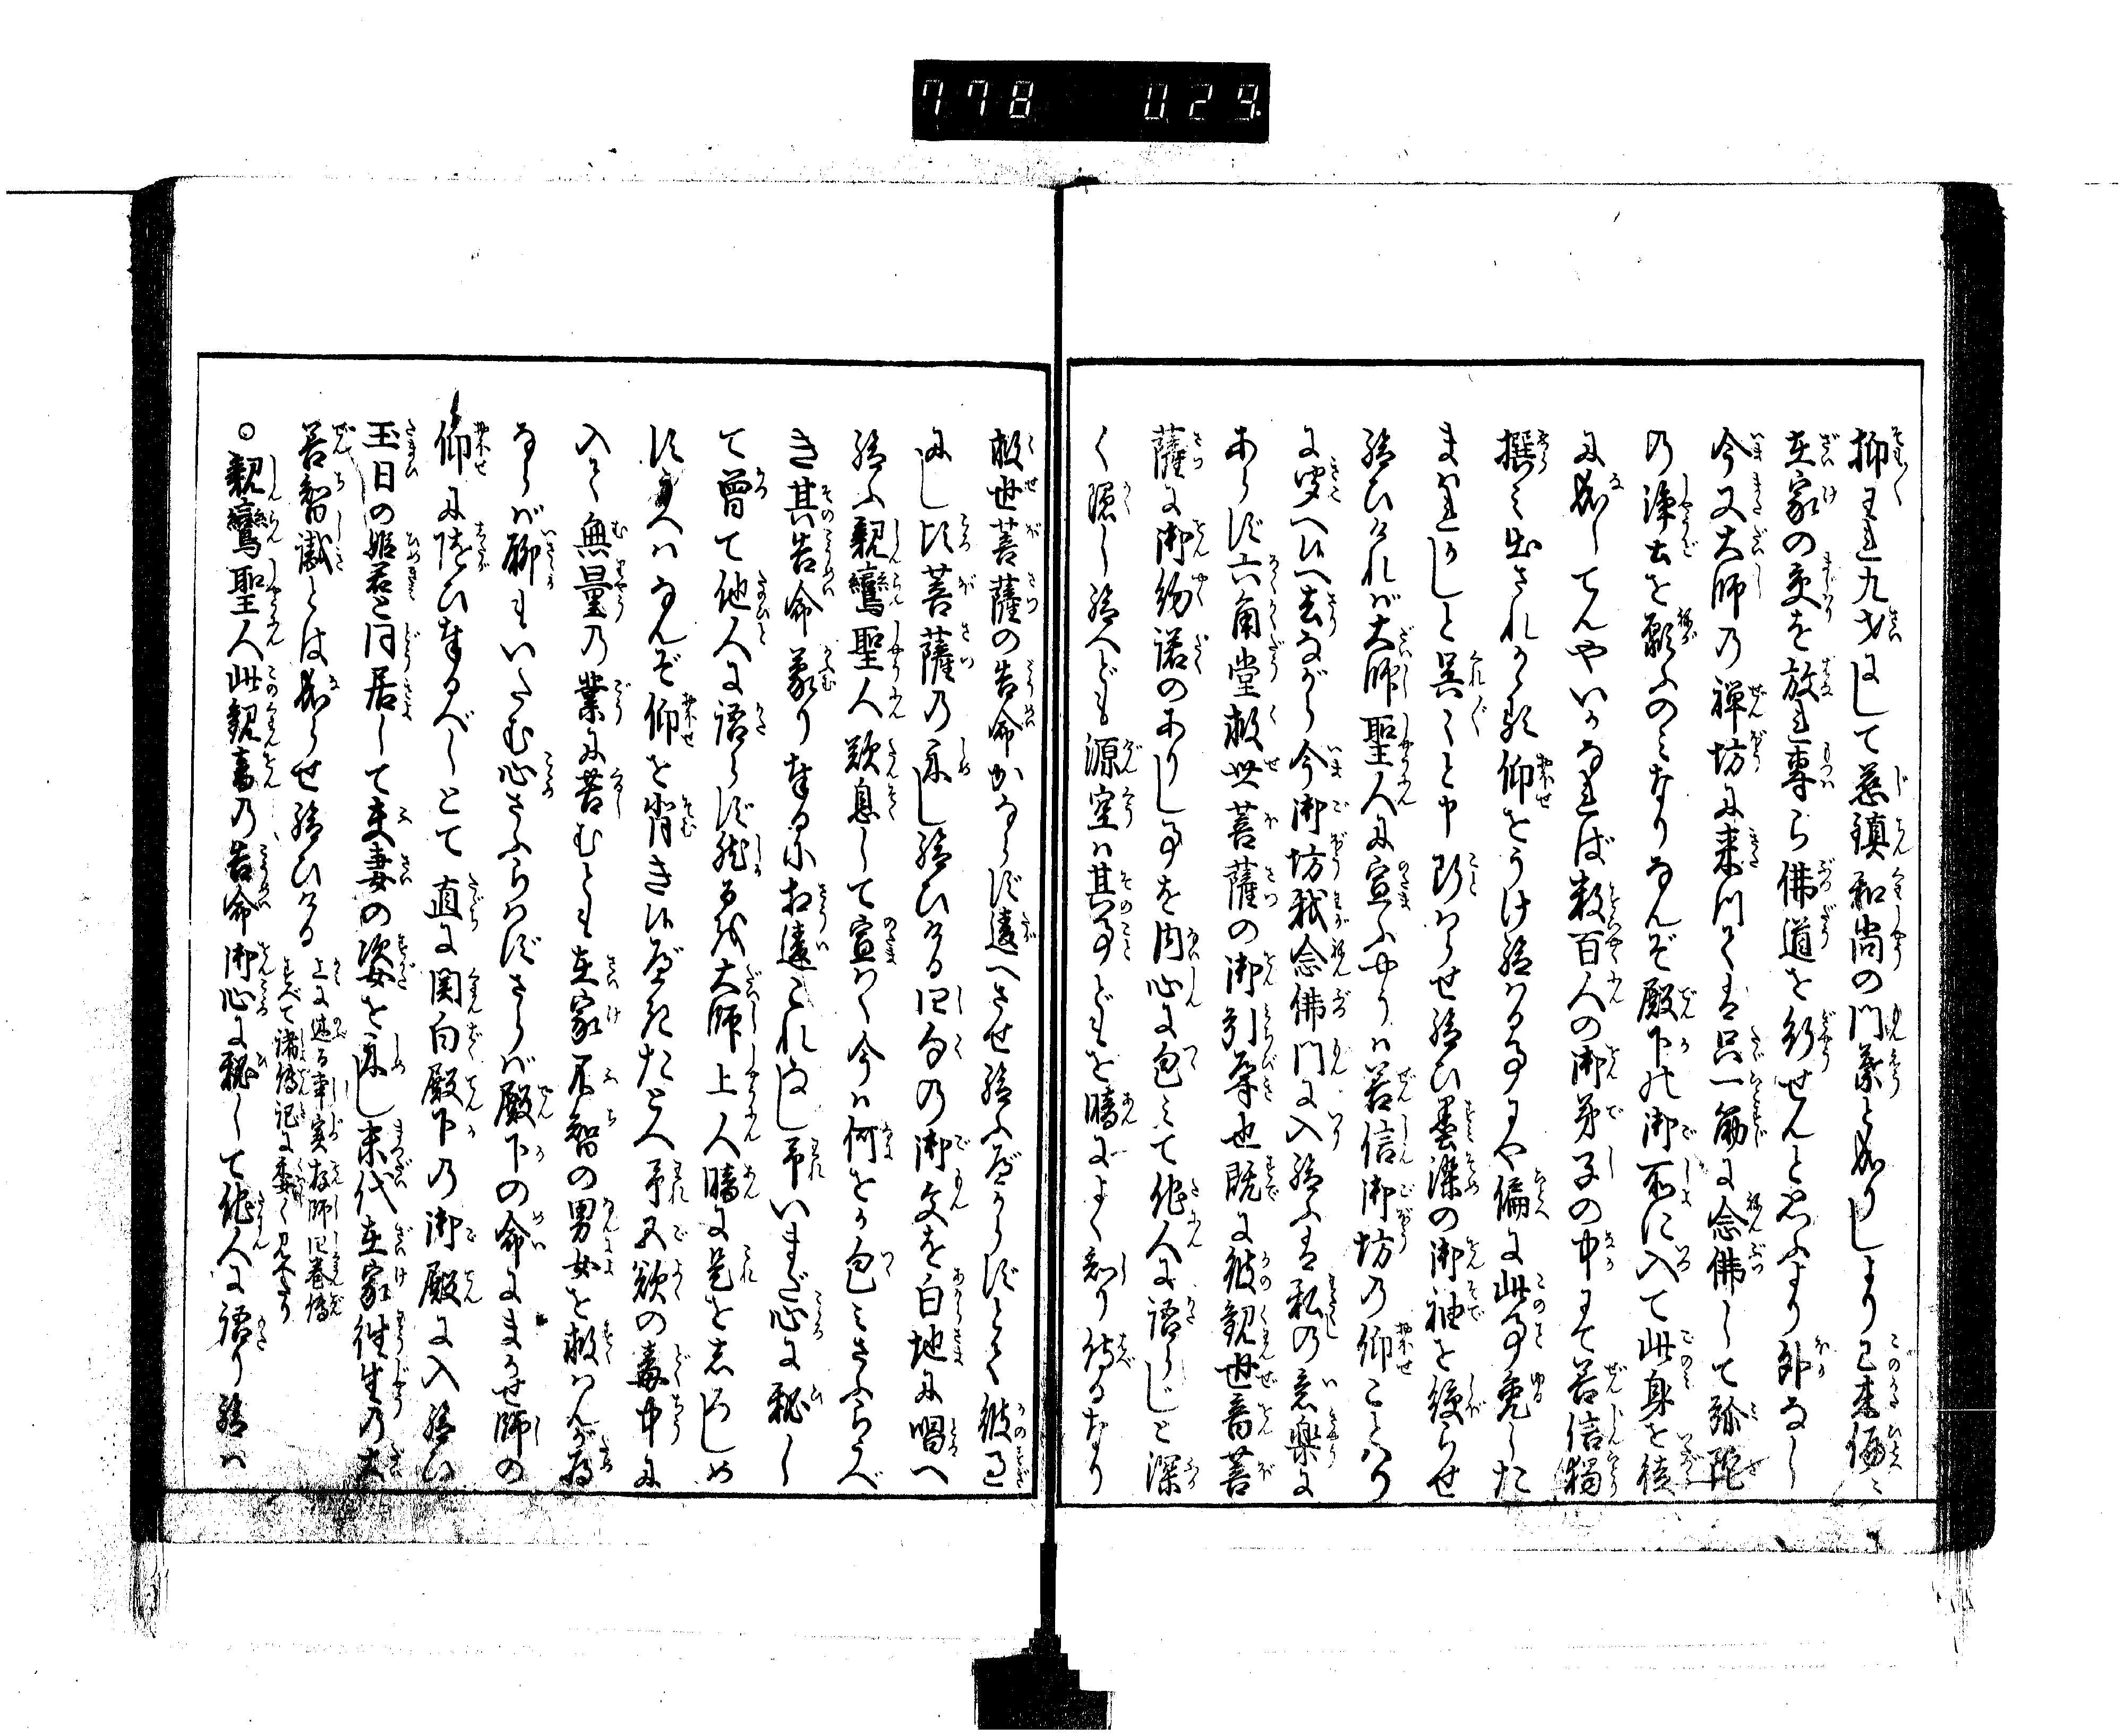 778 029
抑われ九才にして慈鎮和尚の門葉と成りしより已来偏に
在家の交を放れ専ら佛道を行せんと思ふより外なし
今又大師の禅坊に来つては只一筋に念佛して弥陀
の浄土を願ふのみなりなんぞ殿下の御所に入て此身を徒
に成してんやいかなれば数百人の御弟子の中にて善信獨
撰み出されかゝる仰をうけ給はる事にや偏に此事免した
まはれかしと呉々と申断はらせ給ひ墨染の御袖を绞らせ
給ひければ大師聖人に宣ふやうは善信御坊の仰ことはり
に聞へ候へ去ながら今御坊我念佛門に入給ふは私の意楽に
あらず六角堂救世菩薩の御引導也既に彼観世音菩
薩に御約諾のありし事を内心に包みて他人に語らじと深
く隠し給へども源空は其事どもを暗によく知り侍るなり
救世菩薩の告命かならず違へさせ給ふべからずとて彼
にし頃菩薩の示し給ひける四句の御文を白地に唱へ
給ふ親鸞聖人歎息して宣はく今は何をか包みさふらふべ
き其告命蒙り奉るに相違これなし予いまだ心に秘し
て曽て他人に語らず然るを大師上人暗に是を志ろしめ
す上はなんぞ仰を背き候べきたとへ予五欲の毒中に
入て無量の業に苦むとも在家不智の男女を救はんが為
ならば聊もいたむ心さふらはずさらば殿下の命にまかせ師の
仰に随ひ奉るべしとて直に関白殿下の御殿に入給ひ
玉日の姫君と同居して夫妻の姿を示し末代在家往生の大
善智識とは成らせ給ひける
上に述る事実存師四巻傳
すべて諸傳記に委く見へたり
○親鸞聖人此観音の告命御心に秘して他人に語り給は